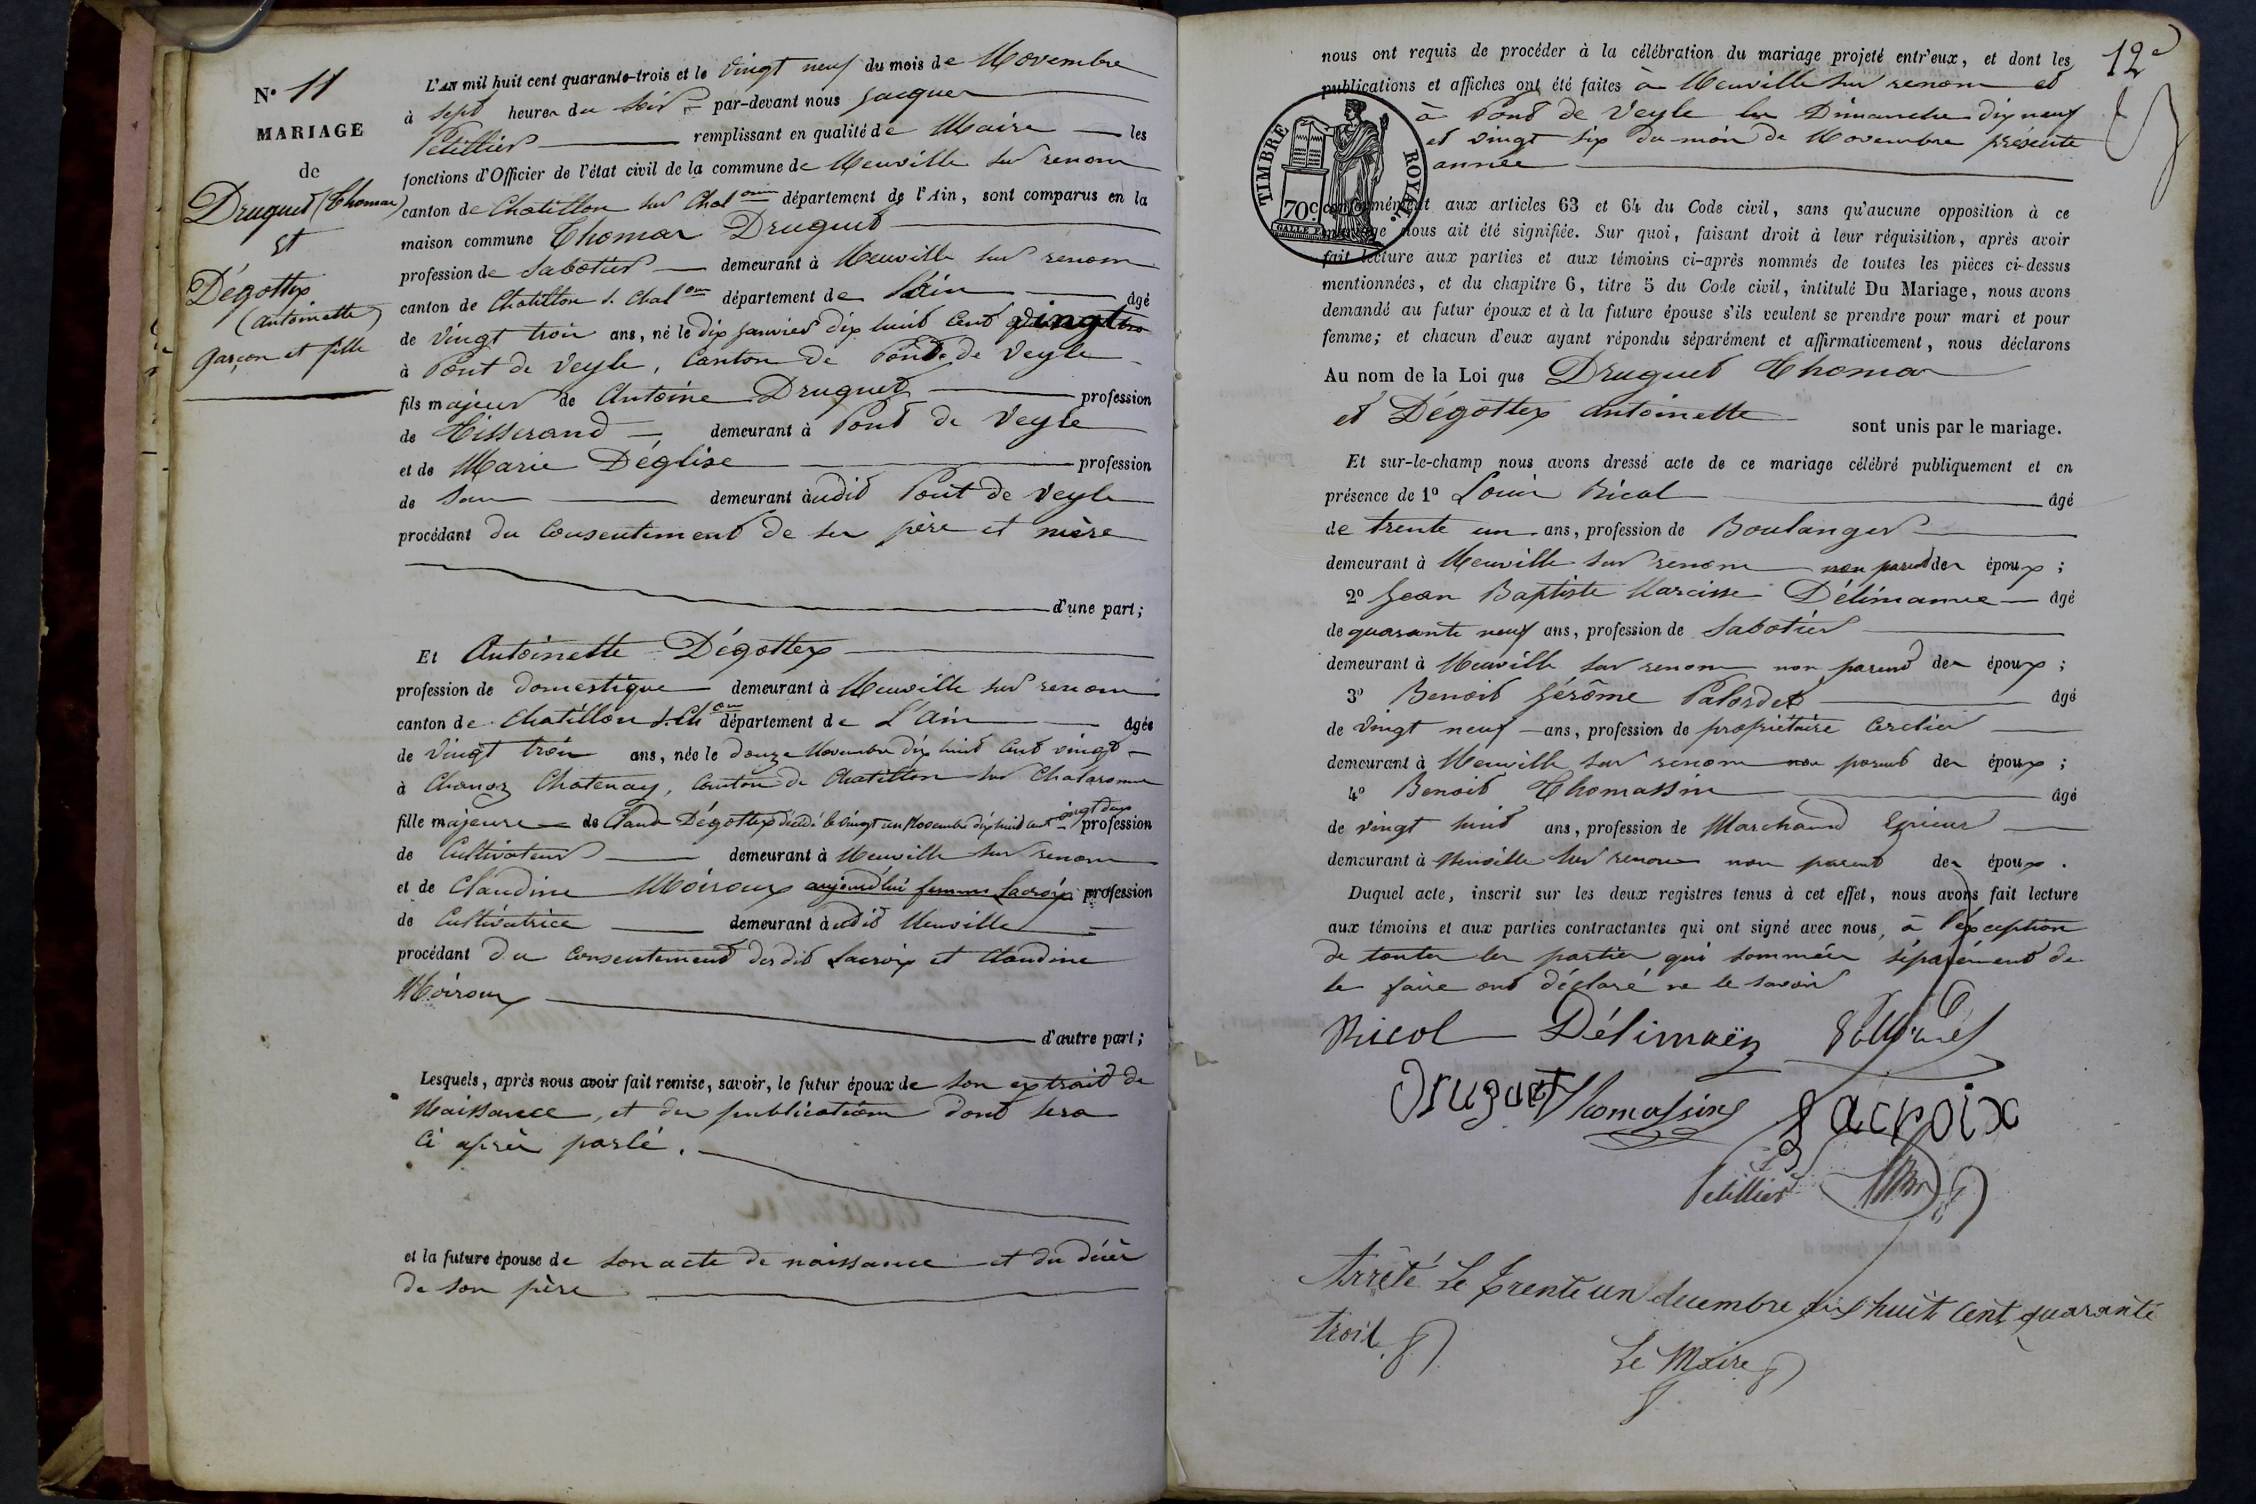 N.º 11
MARIAGE
de
Druguet (Thomas)
et
Dégottex
(antoinette)
garçon et fille
L'AN mil huit cent quarante-trois et le vingt neuf du mois de Novembre
à sept heures du soir par-devant nous Jacques
Petillier remplissant en qualité de Maire les
fonctions d'Officier de l'état civil de la commune de Neuville sur renom
canton de Chatillon sur Chal.onne département de l'Ain, sont comparus en la
maison commune Thomas Druguet
profession de Sabotier demeurant à Neuville sur renom
canton de Chatillon s. Chal.onne département de L'ain âgé
de vingt trois ans, né le dix janvier dix huit cent vingt
à Pont de Veyle, canton de Pont de Veyle
fils majeur de Antoine Druguet profession
de Tisserand demeurant à Pont de Veyle
et de Marie Déglise profession
de San demeurant audit Pont de Veyle
procédant du consentement de ses père et mère
d'une part;
Et Antoinette Dégottex
profession de domestique demeurant à Neuville sur renom
canton de Chatillon s. Ch.onne département de L'Ain âgée
de vingt trois ans, née le douze Novembre dix huit cent vingt
à Chanoz Chatenay, canton de Chatillon sur Chalaronne
fille majeure de Claude Dégottex décédé le vingt un Novembre dix huit cent vingt deux profession
de Cultivateur demeurant à Neuville sur renom
et de Claudine Moiroux aujourd'hui femme Lacroix profession
de Cultivatrice demeurant audit Neuville
procédant du consentement desdits Lacroix et Claudine
Moiroux
d'autre part;
Lesquels, après nous avoir fait remise, savoir, le futur époux de son extrait de
Naissance, et des publications dont sera
ci après parlé.
et la future épouse de son acte de naissance et du décès
de son père
12e
nous ont requis de procéder à la célébration du mariage projeté entr'eux, et dont les
publications et affiches ont été faites à Neuville sur renom et
à Pont de Veyle les Dimanches dix neuf
et vingt six du mois de Novembre présente
année
TIMBRE ROYAL.
70c
conformément aux articles 63 et 64 du Code civil, sans qu'aucune opposition à ce
mariage nous ait été signifiée. Sur quoi, faisant droit à leur réquisition, après avoir
fait lecture aux parties et aux témoins ci-après nommés de toutes les pièces ci-dessus
mentionnées, et du chapitre 6, titre 5 du Code civil, intitulé Du Mariage, nous avons
demandé au futur époux et à la future épouse s'ils veulent se prendre pour mari et pour
femme; et chacun d'eux ayant répondu séparément et affirmativement, nous déclarons
Au nom de la Loi que Druguet Thomas
et Dégottex antoinette sont unis par le mariage.
Et sur-le-champ nous avons dressé acte de ce mariage célébré publiquement et en
présence de 1º Louis Nicol âgé
de trente un ans, profession de Boulanger
demeurant à Neuville sur renom non parent des époux;
2º Jean Baptiste Narcisse âgé
de quarante neuf ans, profession de Sabotier
demeurant à Neuville sur renom non parent des époux;
3º Benoit Jérôme âgé
de vingt neuf ans, profession de propriétaire Cerclier
demeurant à Neuville sur renom non parent des époux;
4º Benoit Thomassin âgé
de vingt huit ans, profession de Marchand Epicier
demeurant à Neuville sur renom non parent des époux.
Duquel acte, inscrit sur les deux registres tenus à cet effet, nous avons fait lecture
aux témoins et aux parties contractantes qui ont signé avec nous, à l'éxception
de toutes les parties qui sommées séparément de
le faire ont déclaré ne le savoir
Nicol Délimaëz
Druguet Thomassin Lacroix
Petillier
Arrêté Le trente un decembre dix huit cent quarante
trois
Le Maire